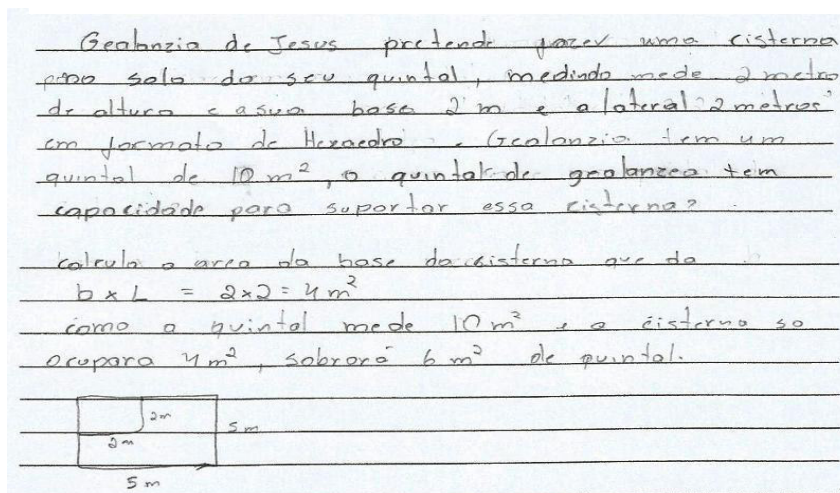 Gealanzia de Jesus pretende fazer uma cisterna
no solo do seu quintal, medindo mede 2 metro
de altura e a sua base 2 m e a lateral 2 metros
em formato de Hexaedro. Gealanzia tem um
quintal de 10 m², o quintal de gealanzea tem
capacidade para suportar essa cisterna?
calculo a area da base da cisterna que da
b x L = 2x2 = 4 m²
como o quintal mede 10 m² e a cisterna so
ocupara 4 m², sobrará 6 m² de quintal.
2m
5m
2m
5 m